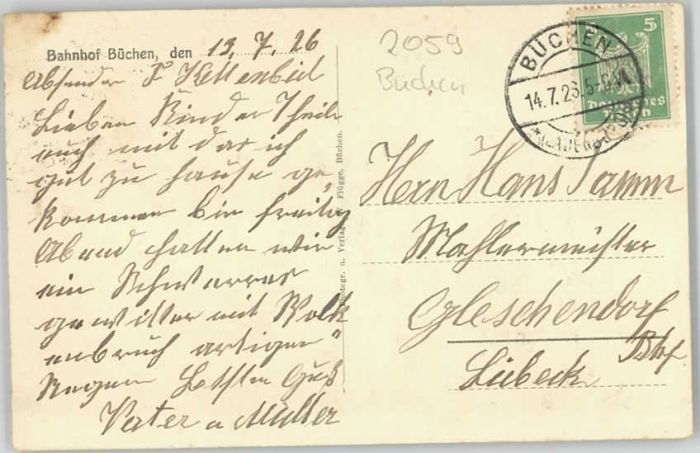 Bahnhof Büchen, den 13.7.26
Absender F Kettenbeil
Lieben Kinder Theile
euch mit das ich
gut zu hause ge„
kommen bin freitag
Abend hatten wir
ein Schweres
gewitter mit Wolk
enbruch artigen
Regen besten Gruß
Vater u Mutter
Photogr. u. Verlag Flügge, Büchen.
2059
Büchen
BÜCHEN
14.7.26.5-6
(LAUENBURG)
5
Deutsches Reich
Herrn Hans Tamm
Mahlermeister
Gleschendorf
Bhf
Lübeck